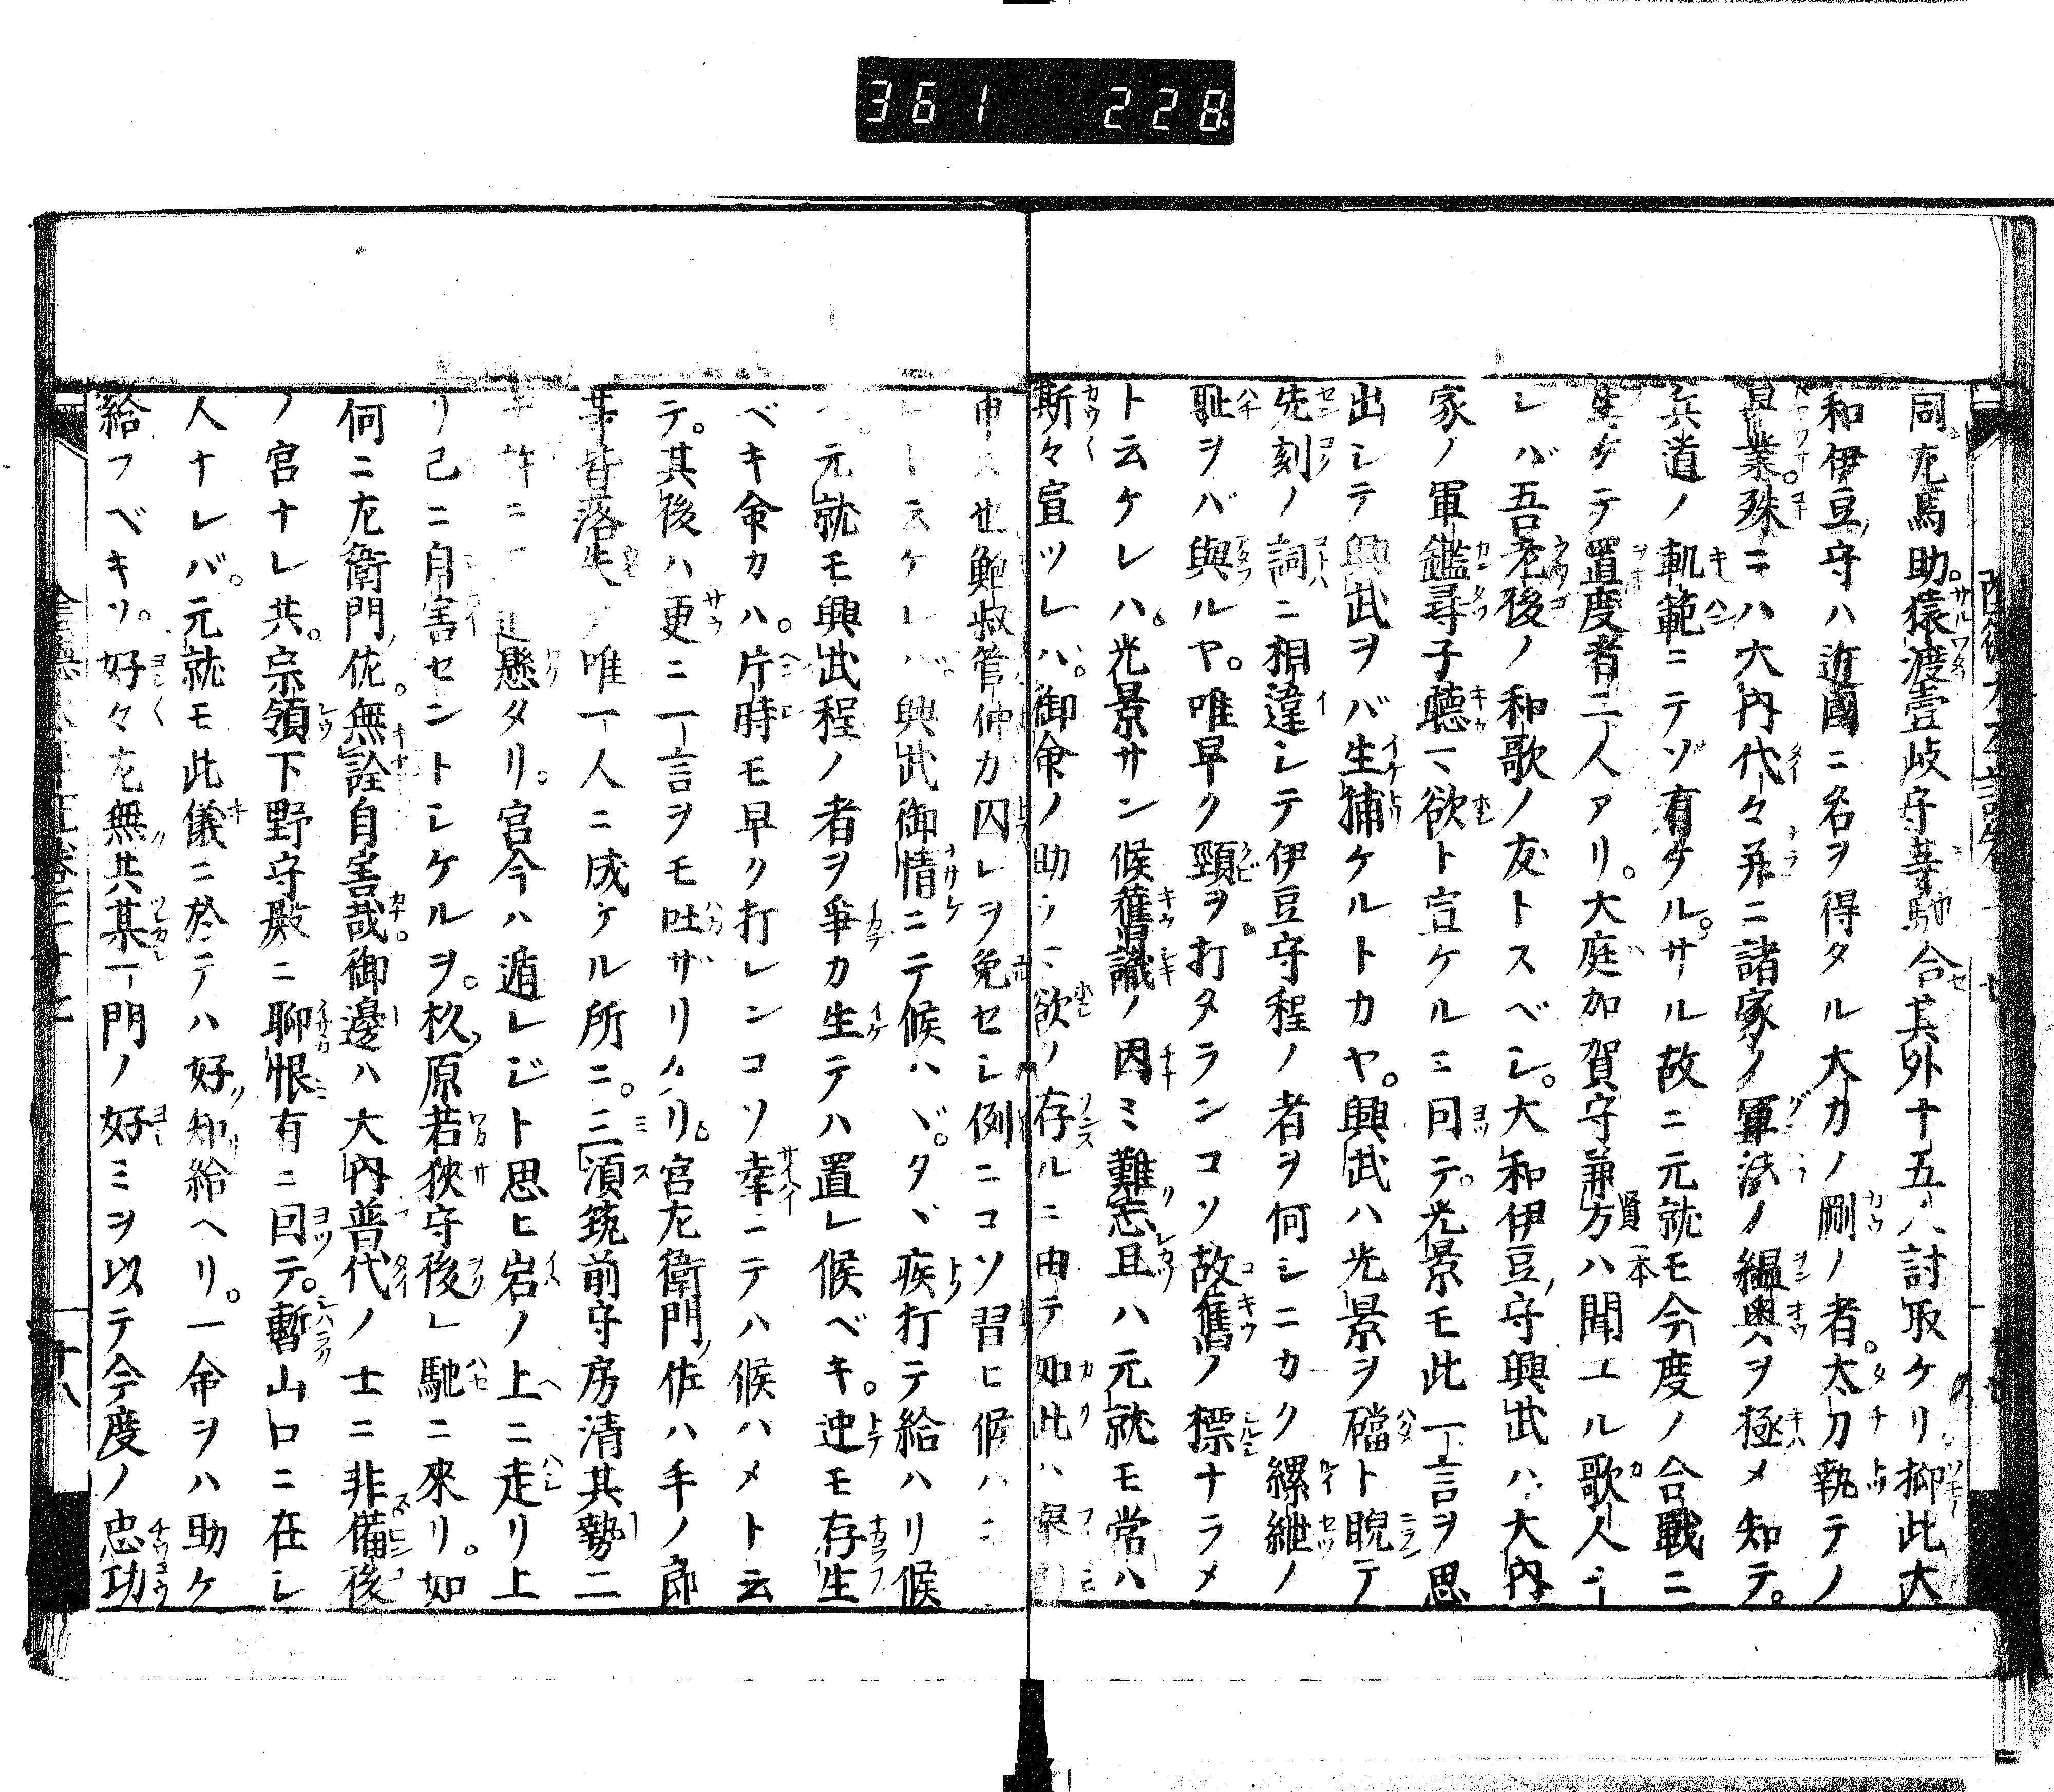 361 228
同左馬助。猿渡壹岐守等馳合其外十五人討取ケリ抑此大
和伊豆守ハ近國ニ名ヲ得タル大力ノ剛ノ者。太刀執テノ
業。殊ニハ大内代々并ニ諸家ノ軍法ノ縕奥ヲ極メ知テ。
兵道ノ軌範ニテゾ有ケル。サル故ニ元就モ今度ノ合戰ニ
生ケテ置度者二人アリ。大庭加賀守兼方ハ聞ユル歌人ナ
レバ吾老後ノ和歌ノ友トスベシ。大和伊豆守興武ハ大内
家ノ軍鑑尋子聴マ欲ト宣ケルニ因テ。光景モ此一言ヲ思
出シテ興武ヲバ生捕ケルトカヤ。興武ハ光景ヲ礑ト睨テ
先刻ノ詞ニ相違シテ伊豆守程ノ者ヲ何シニカク縲紲ノ
耻ヲバ與ルヤ。唯早ク頸ヲ打タランコソ故舊ノ標ナラメ
ト云ケレハ。光景サン候舊識ノ因ミ難忘且ハ元就モ常ハ
斯々宣ツレハ。御命ノ助マ欲ク存ルニ由テ如此ハ
申ス也鮑叔管仲カ囚レヲ免セシ例ニコソ習ヒ候ハ
トスケレバ。興武御情ニテ候ハヾ。タヾ疾打テ給ハリ候
元就モ興武程ノ者ヲ爭カ生テハ置レ候ベキ。迚モ存生
ベキ命カハ。片時モ早ク打レンコソ幸ニテハ候ハメト云
テ。其後ハ更ニ一言ヲモ吐ザリケリ。宮左衛門佐ハ手ノ郎
等皆落失テ唯一人ニ成ケル所ニ。三須筑前守房清其勢二
十許ニテ追懸タリ。宮今ハ遁レジト思ヒ岩ノ上ニ走リ上
リ已ニ自害セントシケルヲ。杦原若狹守後レ馳ニ來リ。如
何ニ左衛門佐。無詮自害哉。御邊ハ大内普代ノ士ニ非備後
ノ宮ナレ共。宗領下野守殿ニ聊恨有ニ因テ。暫山口ニ在シ
人ナレバ。元就モ此儀ニ於テハ好知給ヘリ。一命ヲハ助ケ
給フベキソ。好々左無共某一門ノ好ミヲ以テ今度ノ忠功
十八